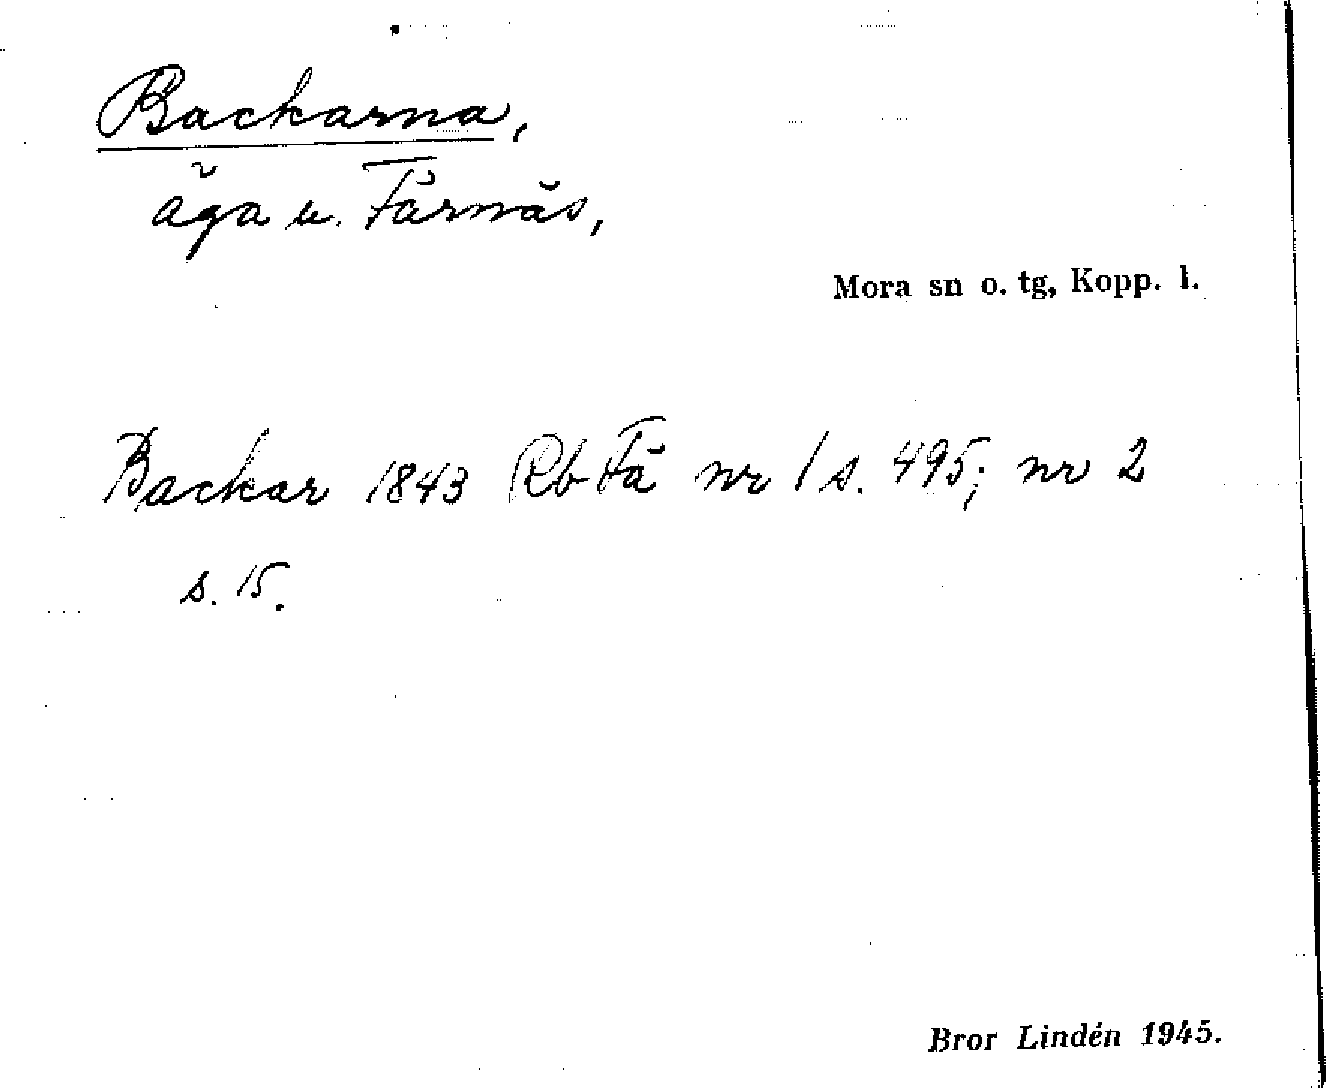 Backarna,
äga u. Färnäs,
Mora sn o. tg, Kopp. l.
Backar 1843 Rb Fä nr 1 s. 495; nr 2
s. 15.
Bror Lindén 1945.